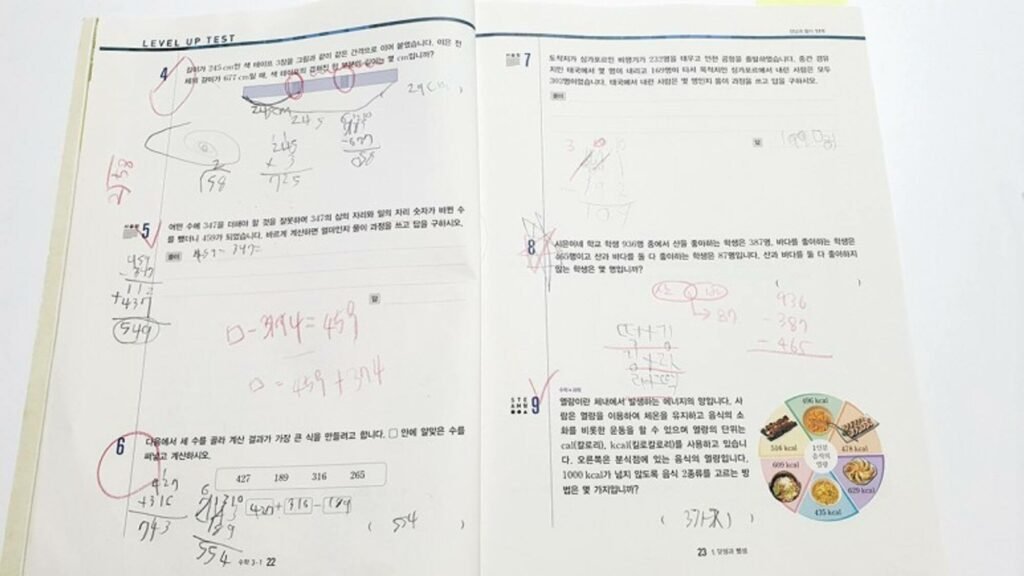 LEVEL UP TEST
4
길이가 245 cm인 색 테이프 3장을 그림과 같이 같은 간격으로 이어 붙였습니다. 이은 전
체의 길이가 677 cm일 때, 색 테이프의 겹쳐진 한 부분의 길이는 몇 cm입니까?
29cm
245cm
245
245
× 3
725
-677
058
2
158
2)58
서술형 5
어떤 수에 347을 더해야 할 것을 잘못하여 347의 십의 자리와 일의 자리 숫자가 바뀐 수
를 뺐더니 459가 되었습니다. 바르게 계산하면 얼마인지 풀이 과정을 쓰고 답을 구하시오.
풀이
459-347=
459
-347
112
+437
549
답
□-374=459
□=459+374
6
다음에서 세 수를 골라 계산 결과가 가장 큰 식을 만들려고 합니다. □ 안에 알맞은 수를
써넣고 계산하시오.
427 189 316 265
427+316-189
( 554 )
427
+316
743
6 13 10
189
554
수학 3-1 22
서술형 7
도착지가 싱가포르인 비행기가 232명을 태우고 인천 공항을 출발하였습니다. 중간 경유
지인 태국에서 몇 명이 내리고 169명이 타서 목적지인 싱가포르에서 내린 사람은 모두
302명이었습니다. 태국에서 내린 사람은 몇 명인지 풀이 과정을 쓰고 답을 구하시오.
풀이
답
3
109
8
시은이네 학교 학생 936명 중에서 산을 좋아하는 학생은 387명, 바다를 좋아하는 학생은
465명이고 산과 바다를 둘 다 좋아하는 학생은 87명입니다. 산과 바다를 둘 다 좋아하지
않는 학생은 몇 명입니까?
( )
산
87
936
-387
-465
수학+과학
STEAM 9
열량이란 체내에서 발생하는 에너지의 양입니다. 사
람은 열량을 이용하여 체온을 유지하고 음식의 소
화를 비롯한 운동을 할 수 있으며 열량의 단위는
cal(칼로리), kcal(킬로칼로리)를 사용하고 있습니
다. 오른쪽은 분식점에 있는 음식의 열량입니다.
1000 kcal가 넘지 않도록 음식 2종류를 고르는 방
법은 몇 가지입니까?
496 kcal
478 kcal
629 kcal
435 kcal
609 kcal
516 kcal
1인분
음식의
열량
( 3가지 )
23 1. 덧셈과 뺄셈